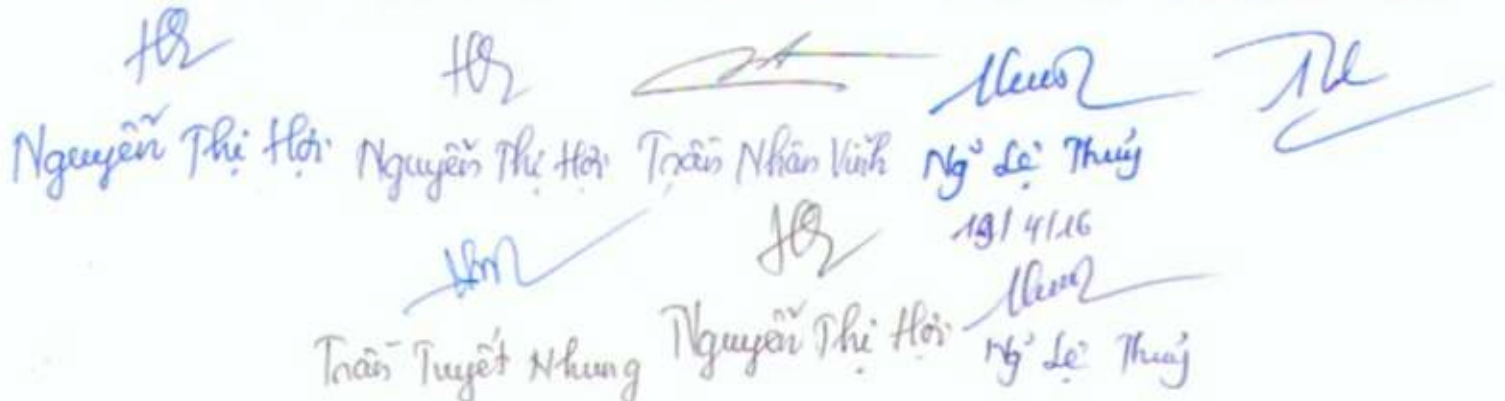 Nguyễn Thị Hợi Nguyễn Thị Hợi Trần Nhân Vinh Ng̉ Lệ Thuỷ
19/4/16
Trần Tuyết Nhung Nguyễn Thị Hợi Ng̉ Lệ Thuỷ